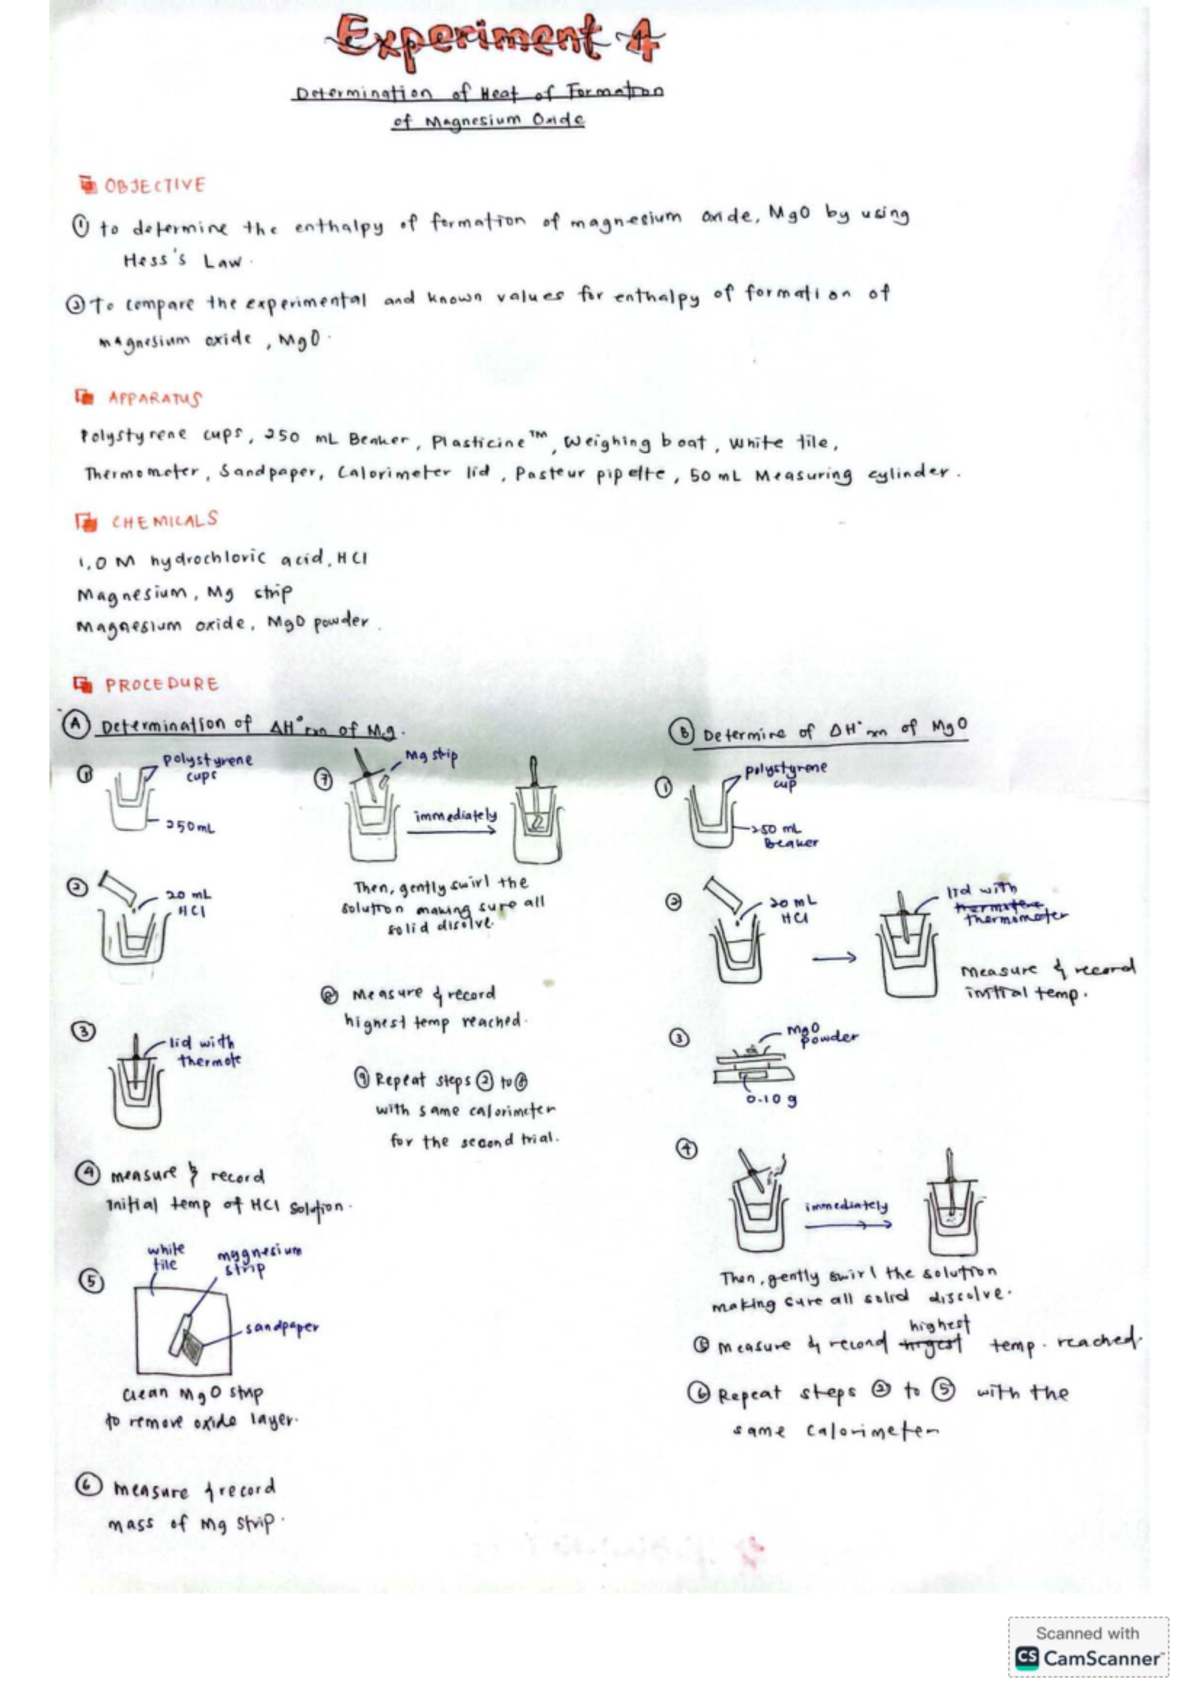 Experiment 4
Determination of Heat of Formation
of Magnesium Oxide
OBJECTIVE
① to determine the enthalpy of formation of magnesium oxide, MgO by using
Hess's Law.
② To compare the experimental and known values for enthalpy of formation of
magnesium oxide, MgO.
APPARATUS
Polystyrene cups, 250 mL Beaker, Plasticine™, Weighing boat, White tile,
Thermometer, Sandpaper, Calorimeter lid, Pasteur pipette, 50 mL Measuring cylinder.
CHEMICALS
1.0 M hydrochloric acid, HCl
Magnesium, Mg strip
Magnesium oxide, MgO powder.
PROCEDURE
Ⓐ Determination of ΔH°rxn of Mg.
①
polystyrene
cups
250mL
②
20 mL
HCl
③
lid with
thermote
④ measure & record
initial temp of HCl solution.
⑤
white
tile
mygnesium
strip
sandpaper
Clean MgO strip
to remove oxide layer.
⑥ measure & record
mass of Mg strip.
⑦
Mg strip
immediately
Then, gently swirl the
solution making sure all
solid disolve.
⑧ Measure & record
highest temp reached.
⑨ Repeat steps ② to ⑧
with same calorimeter
for the second trial.
Ⓑ Determine of ΔH°rxn of MgO
①
polystyrene
cup
250 mL
Beaker
②
20 mL
HCl
lid with
thermometer
Measure & record
initial temp.
③
MgO
powder
0.10 g
④
immediately
Then, gently swirl the solution
making sure all solid dissolve.
highest
⑤ measure & record temp. reached.
⑥ Repeat steps ② to ⑤ with the
same calorimeter
Scanned with
CS CamScanner